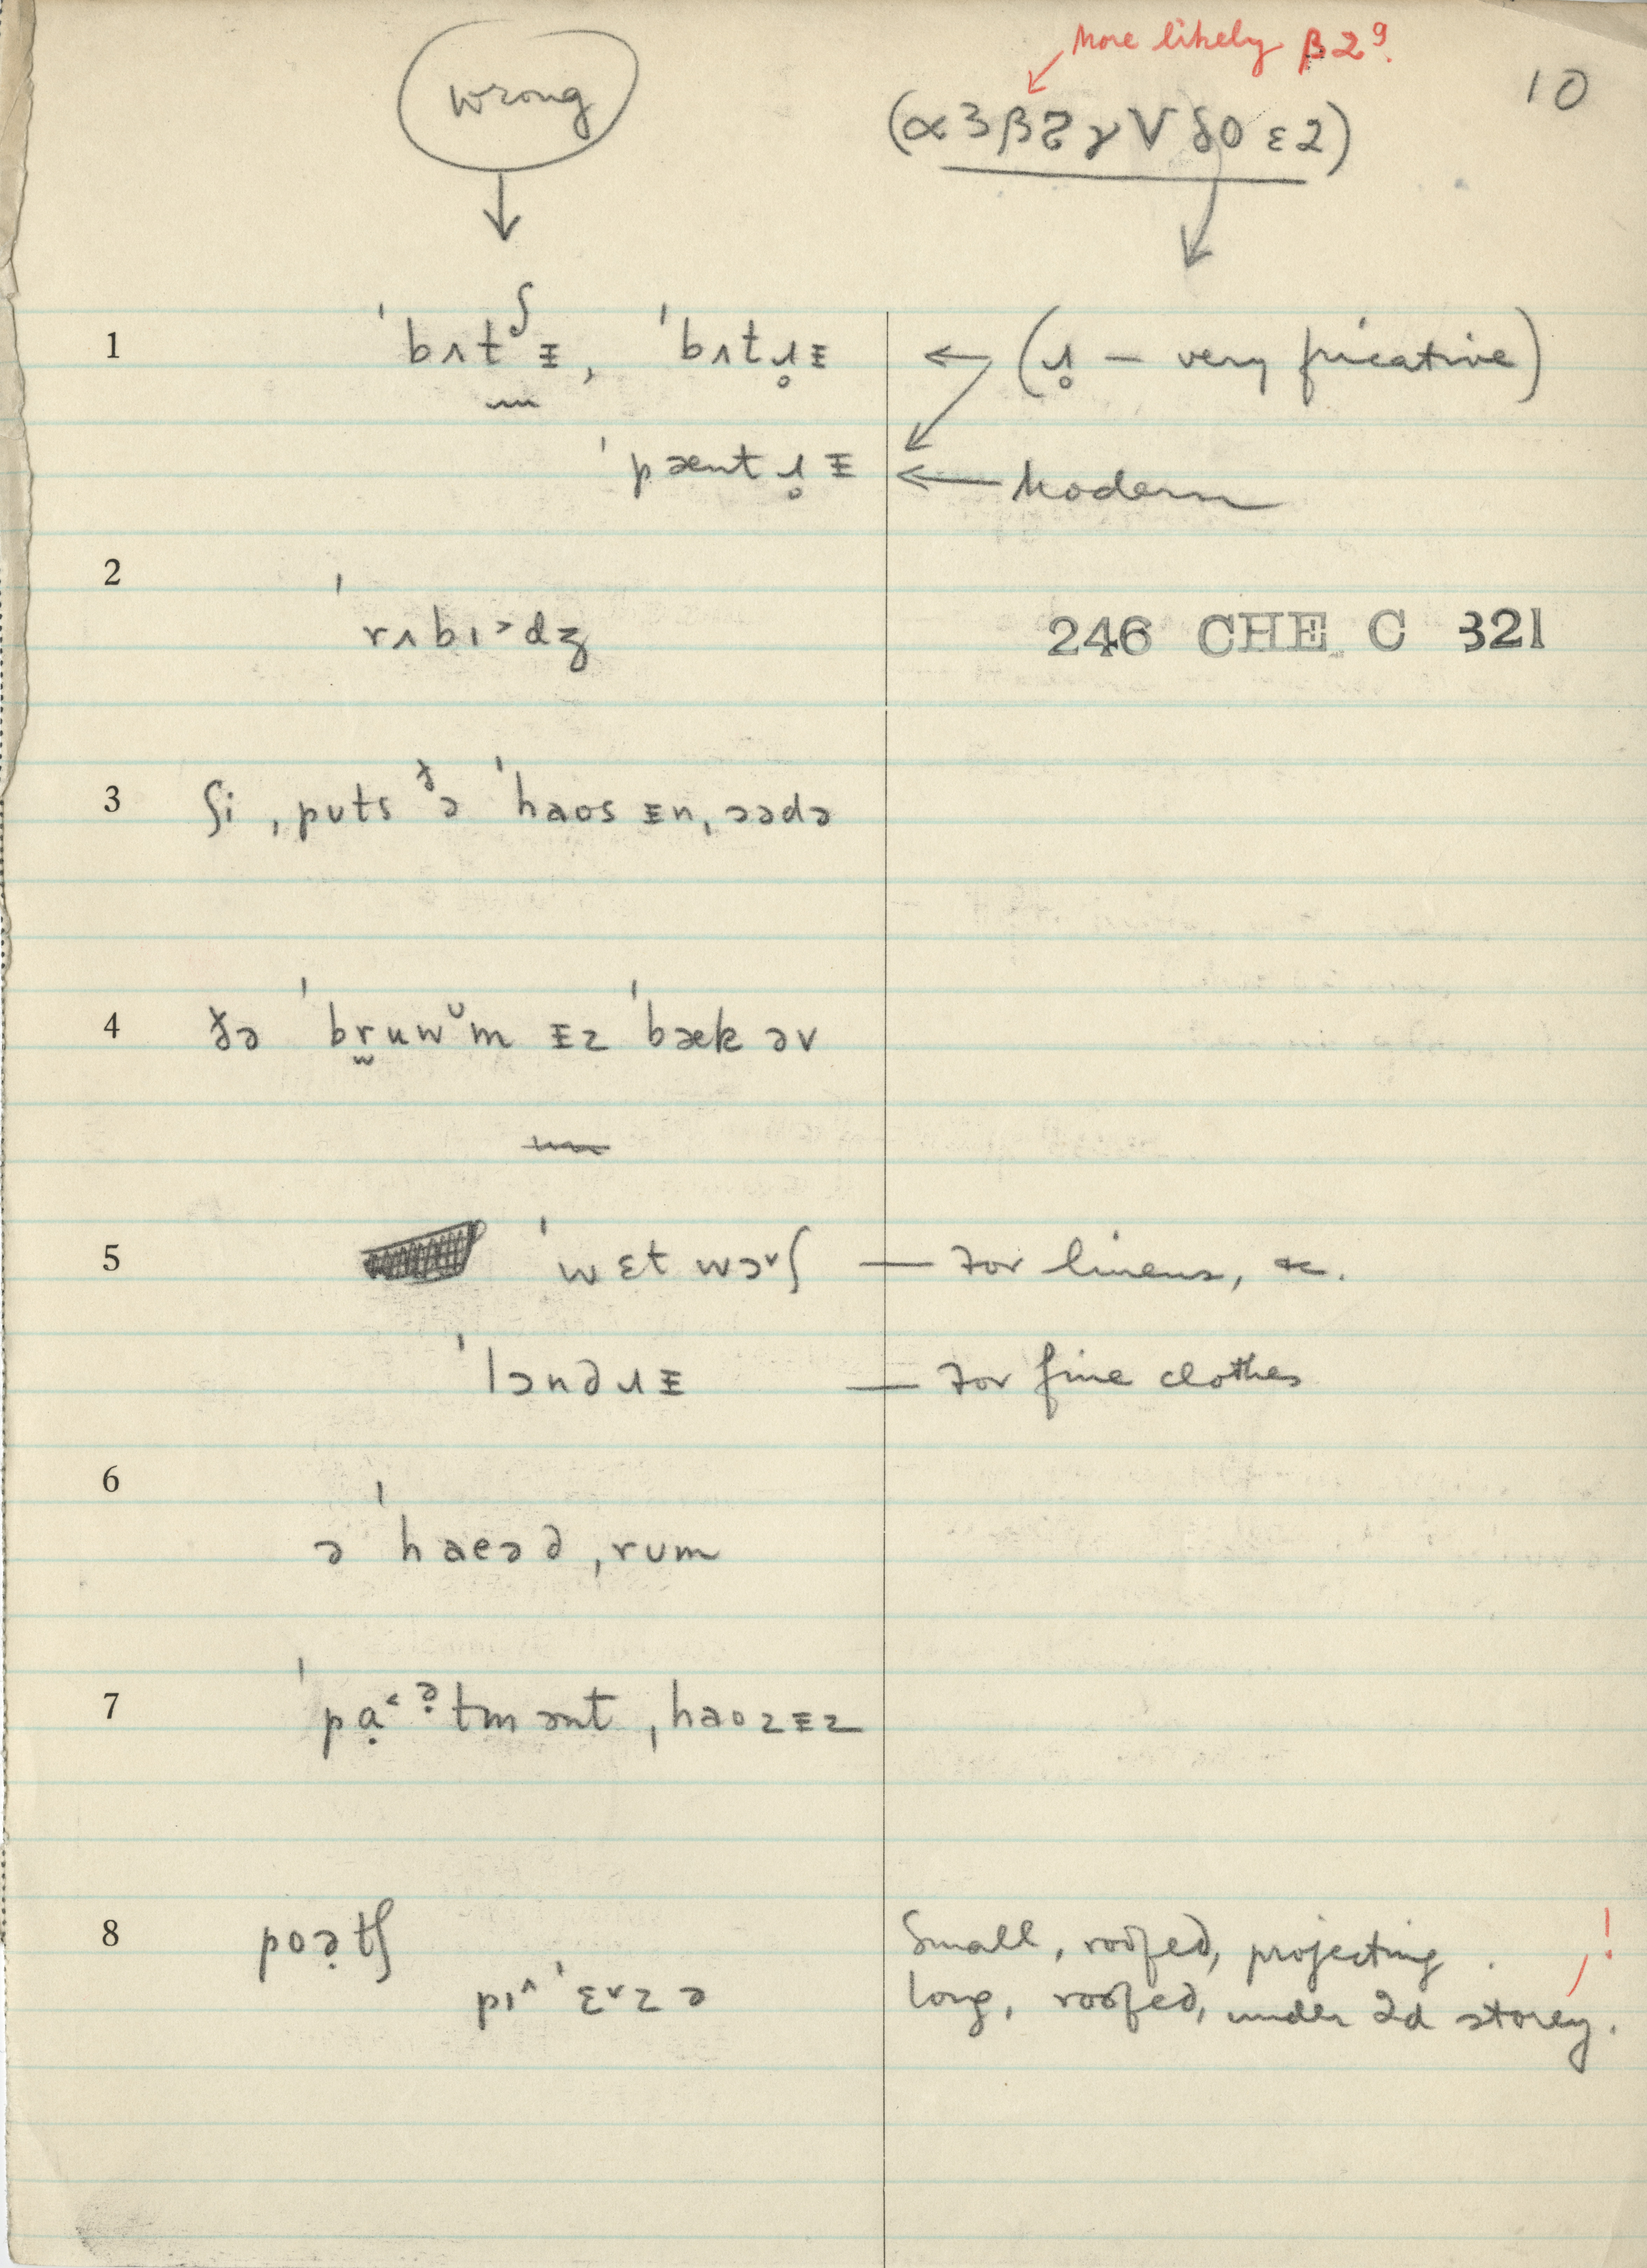 More likely β2ᵍ.
10
wrong
(α3β2̃γVδ0ε2)
1 ˈbʌtʃᵻ, ˈbʌtɹ̥ᵻ ← (ɹ̥ – very fricative)
ˈpæntɹ̥ᵻ ← Modern
2
ˈrʌbɪ˃dʒ
246 CHE C 321
3 ʃi ˌputs ᵟə ˈhaos ᵻn ˌɔədə
4 ðə ˈbr̬uwᵘm ᵻz ˈbæk əv
5 ˈwɛt wɔ˅ʃ — For linens, &c.
ˈlɔndɹᵻ — For fine clothes
6
ə ˈhaeəd ˌrum
7 ˈpạ˂ᵊ̣tmənt ˌhaozᵻz
8 poə̣tʃ Small, roofed, projecting. !
pɪ˄ˈɛ˅zə long, roofed, under 2d storey.